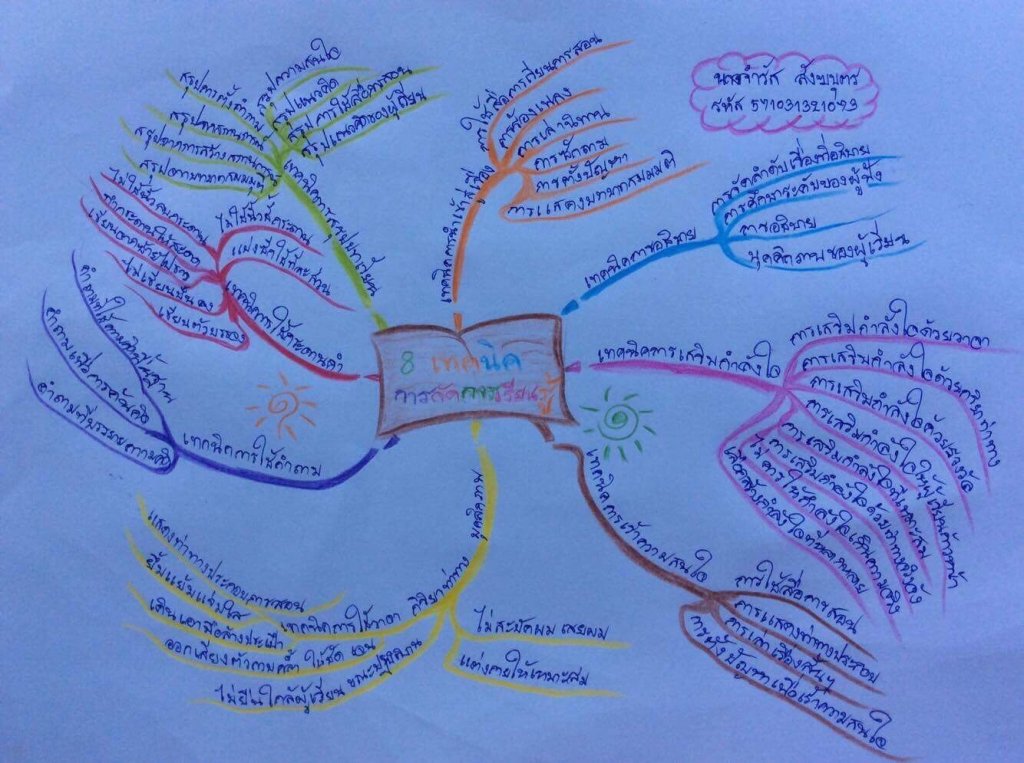 8 เทคนิค
การจัดการเรียนรู้
รหัส 571031321093
เทคนิคการนำเข้าสู่เรื่อง
การใช้สื่อการเรียนการสอน
การร้องเพลง
การเล่านิทาน
การซักถาม
การตั้งปัญหา
การแสดงบทบาทสมมมติ
เทคนิคการอธิบาย
การจัดลำดับเรื่องที่อธิบาย
การศึกษาระดับของผู้ฟัง
การอธิบาย
บุคลิกภาพของผู้เรียน
เทคนิคการเสริมกำลังใจ
การเสริมกำลังใจด้วยวาจา
การเสริมกำลังใจด้วยกิริยาท่าทาง
การเสริมกำลังใจด้วยสิ่งของ
การเสริมกำลังใจให้ผู้เรียนก้าวหน้า
การเสริมกำลังใจที่เหมาะสม
การเสริมกำลังใจด้วยท่าทาง
ไม่ควรให้กำลังใจเกินความจริง
เทคนิคการเร้าความสนใจ
การใช้สื่อการสอน
การแสดงท่าทางประกอบ
การเล่าเรื่องสั้นๆ
การตั้งปัญหาเพื่อเร้าความสนใจ
บุคลิกภาพ
กิริยาท่าทาง
เทคนิคการใช้วาจา
ไม่สะบัดผม เสยผม
แต่งกายให้เหมาะสม
แสดงท่าทางประกอบการสอน
ยิ้มแย้มแจ่มใส
เดินเอามือล้วงกระเป๋า
ออกเสียงตัวควบกล้ำ ให้ชัดเจน
ไม่ยืนใกล้ผู้เรียน
เทคนิคการใช้คำถาม
คำถามที่ใช้ความคิดพื้นฐาน
คำถามเพื่อการคิดค้น
คำถามที่ขยายความคิด
เทคนิคการใช้กระดานดำ
ไม่ใช้นิ้วลบกระดาน
ทำกระดานให้สะอาด
เขียนจากซ้ายไปขวา
ไม่เขียนพื้นล่าง
เขียนตัวบรรจง
ไม่ใช้นิ้วชี้กระดาน
แบ่งซีกใช้ทีละส่วน
เทคนิคการสรุปบทเรียน
สรุปความสนใจ
สรุปแนวคิด
สรุปการใช้สื่อการสอน
สรุปแนวคิดของผู้เรียน
สรุปการตั้งคำถาม
สรุปสถานการณ์
สรุปจากการสร้างสถานการณ์
สรุปจากบทบาทสมมมุติ